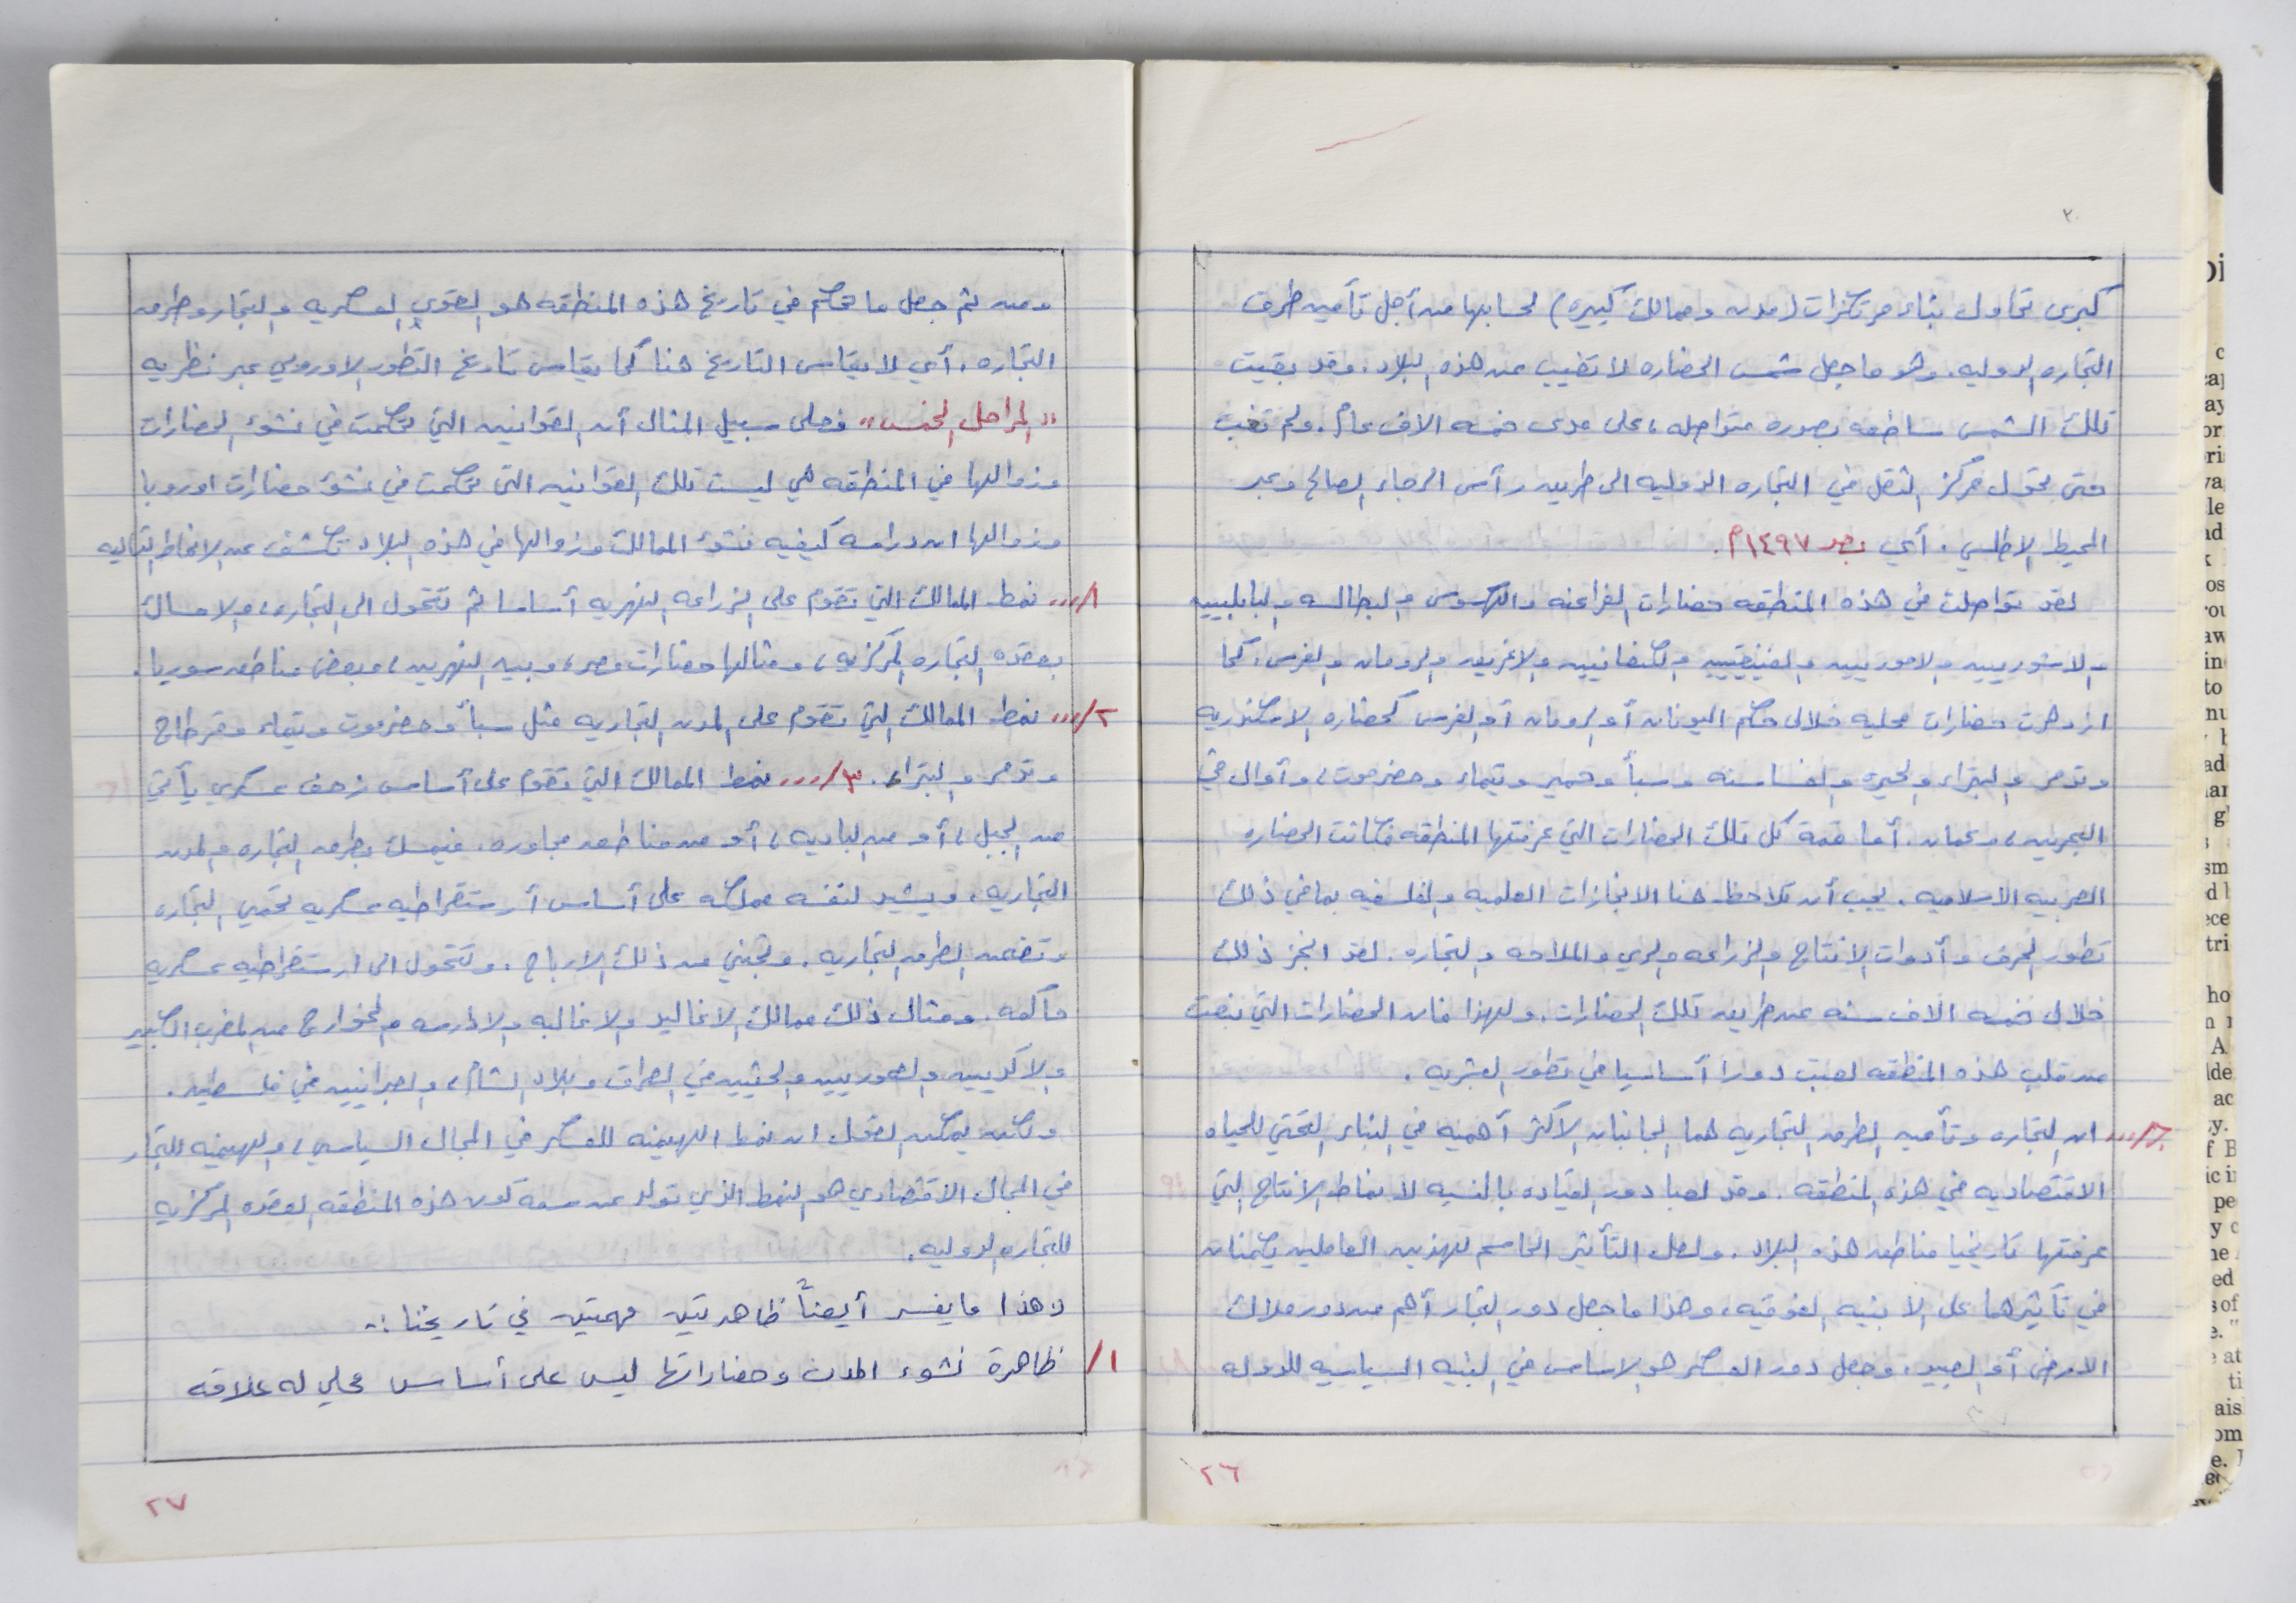 ٢٠
كبرى تحاول بناء مرتكزات (مدن وممالك كبيره) لحسابها من أجل تأمين طرق
التجاره الدوليه. وهو ما جعل شمس الحضاره لا تغيب عن هذه البلاد. وقد بقيت
تلك الشمس ساطعه بصوره متواصله، على مدى خمسه الاف عام. ولم تغب
حتى تحول مركز الثقل في التجاره الدوليه الى طريق رأس الرجاء الصالح وعبر
المحيط الاطلسي. أي بعد ١٤٩٧م.
لقد تواصلت في هذه المنطقه حضارات الفراعنه والهكسوس والبطالسه والبابليين
والاشوريين والاموريين والفينيقيين والكنعانيين والاغريق والرومان والفرس. كما
ازدهرت حضارات محليه خلال حكم اليونان أو الرومان أو الفرس كحضاره الاسكندريه
وتدمر والبتراء والحيره والغساسنه وسبأ وحمير وتيماء وحضرموت، وأوال في
البحرين، وعمان. أما قمة كل تلك الحضارات التي عرفتها المنطقه فكانت الحضاره
العربيه الاسلاميه. يجب أن تلاحظ هنا الانجازات العلميه والفلسفيه بما في ذلك
تطور الحرف وأدوات الانتاج والزراعه والري والملاحه والتجاره. لقد انجز ذلك
خلال خمسه الاف سنه عن طريق تلك الحضارات. ولهذا فان الحضارات التي نبعت
من قلب هذه المنطقه لعبت دورا أساسيا في تطور البشريه.
٦/... ان التجاره وتأمين الطرق التجاريه هما الجانبان الاكثر أهميه في البناء التحتي للحياه
الاقتصاديه في هذه المنطقه. وقد لعبا دور القياده بالنسبه لانماط الانتاج التي
عرفتها تاريخيا مناطق هذه البلاد. ولعل التأثير الحاسم لهذين العاملين يكمنان
في تأثيرهما على الابنيه الفوقيه، وهذا ما جعل دور التجار أهم من دور ملاك
الارض أو العبيد. وجعل دور العسكر هو الاساس في البنيه السياسيه للدوله
٢٦
ومن ثم جعل ما تحكم في تاريخ هذه المنطقه هو القوى العسكريه والتجار وطرق
التجاره. أي لا يقاس التاريخ هنا كما يقاس تاريخ التطور الاوروبي عبر نظريه
"المراحل الخمس" فعلى سبيل المثال أن القوانين التي تحكمت في نشوء الحضارات
وزوالها في المنطقه هي ليست تلك القوانين التي تحكمت في نشوء حضارات اوروبا
وزوالها ان دراسه كيفيه نشوء الممالك وزوالها في هذه البلاد تكشف عن الانماط التاليه
١/... نمط الممالك التي تقوم على الزراعه النهريه أساسا ثم تتحول الى التجاره، والامساك
بعقده التجاره المركزيه، ومثالها حضارات مصر، وبين النهرين، وبعض مناطق سوريا.
٢/... نمط الممالك التي تقوم على المدن التجاريه مثل سبأ وحضرموت وتيماء وقرطاج
وتدمر والبتراء. ٣/... نمط الممالك التي تقوم على أساس زحف عسكري يأتي
من الجبل، أو من الباديه، أو من مناطق مجاوره. فيمسك بطرق التجاره والمدن
التجاريه، ويشيد لنفسه مملكه على أساس أرستقراطيه عسكريه تحمي التجاره
وتضمن الطرق التجاريه. وتجني من ذلك الارباح. وتتحول الى ارستقراطيه عسكريه
حاكمه. ومثال ذلك ممالك والاغالبه والادارسه والخوارج من المغرب الكبير
والاكديين والحثيين في العراق وبلاد الشام، والعبرانيين في فلسطين.
ولكن يمكن القول ان نمط الهيمنه للعسكر في المجال السياسي، والهيمنه للتجار
في المجال الاقتصادي هو النمط الذي تولد عن سمة كون هذه المنطقه العقده المركزيه
للتجاره الدوليه.
وهذا ما يفسر أيضاً ظاهرتين مهمتين في تاريخنا:-
١/ ظاهرة نشوء المدن وحضاراتها ليس على أساس محلي له علاقه
٢٧